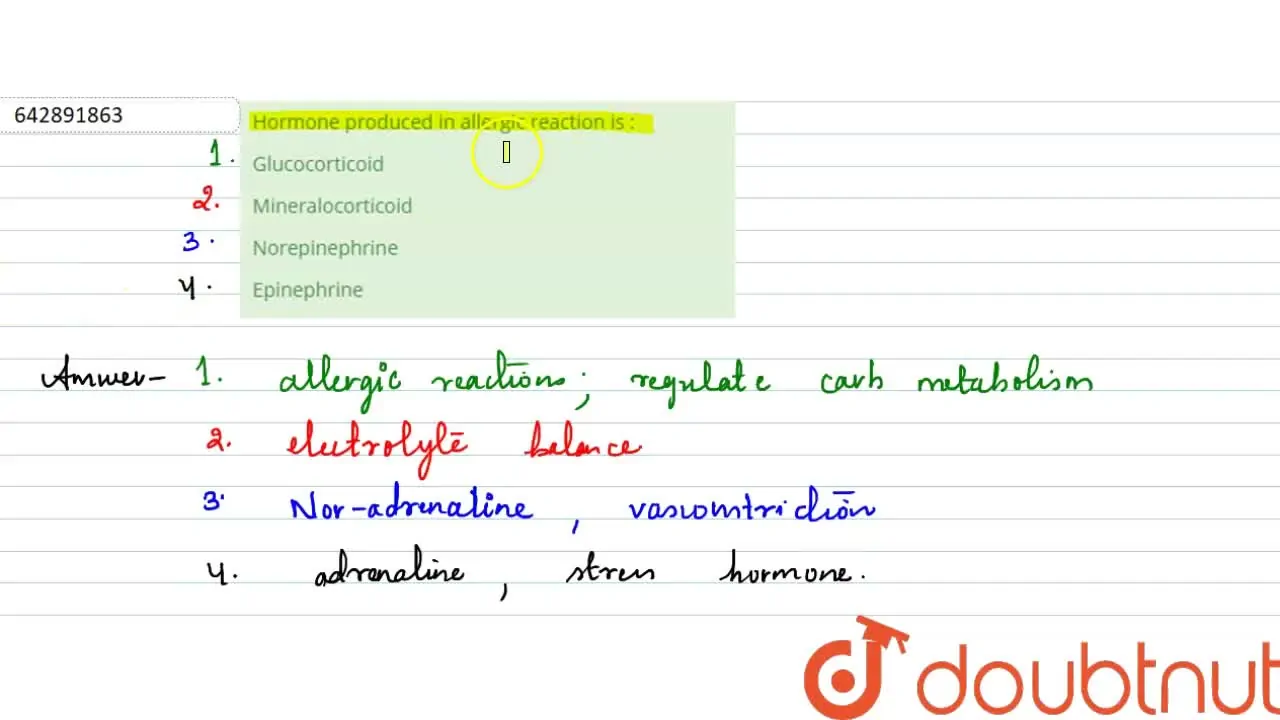 642891863
Hormone produced in allergic reaction is :
1. Glucocorticoid
2. Mineralocorticoid
3. Norepinephrine
4. Epinephrine
Answer- 1. allergic reactions; regulate carb metabolism
2. electrolyte balance
3. Nor-adrenaline, vasconstriction
4. adrenaline, stress hormone.
doubtnut